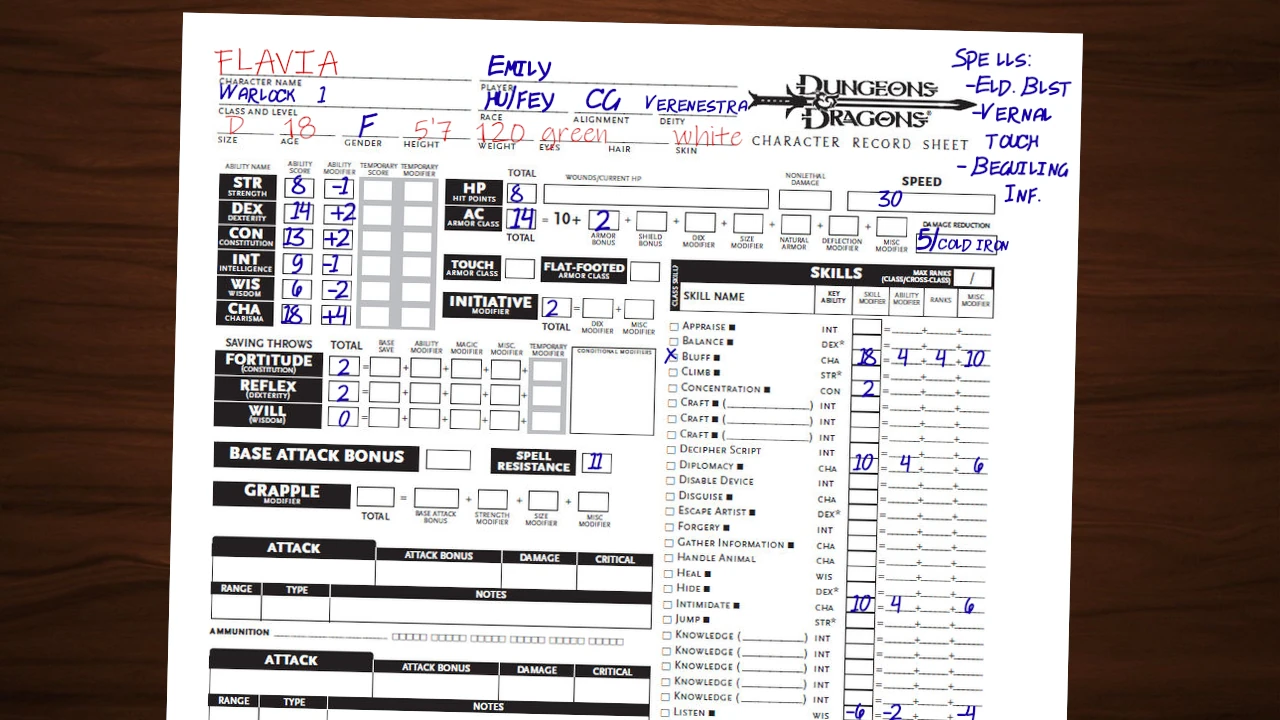 FLAVIA
CHARACTER NAME
EMILY
PLAYER
SPELLS:
-ELD. BLST
-VERNAL
TOUCH
- BEGUILING
INF.
WARLOCK 1
CLASS AND LEVEL
HU/FEY
RACE
CG
ALIGNMENT
VERENESTRA
DEITY
DUNGEONS
&
DRAGONS®
CHARACTER RECORD SHEET
D
SIZE
18
AGE
F
GENDER
5'7
HEIGHT
120
WEIGHT
green
EYES
HAIR
white
SKIN
ABILITY NAME ABILITY SCORE ABILITY MODIFIER TEMPORARY SCORE TEMPORARY MODIFIER
STR STRENGTH 8 -1
DEX DEXTERITY 14 +2
CON CONSTITUTION 13 +2
INT INTELLIGENCE 9 -1
WIS WISDOM 6 -2
CHA CHARISMA 18 +4
TOTAL WOUNDS/CURRENT HP NONLETHAL DAMAGE SPEED
HP HIT POINTS 8 30
AC ARMOR CLASS 14 = 10+ 2 + + + + + +
TOTAL ARMOR BONUS SHIELD BONUS DEX MODIFIER SIZE MODIFIER NATURAL ARMOR DEFLECTION MODIFIER MISC MODIFIER
DAMAGE REDUCTION
5/COLD IRON
TOUCH ARMOR CLASS FLAT-FOOTED ARMOR CLASS
INITIATIVE MODIFIER 2 = +
TOTAL DEX MODIFIER MISC MODIFIER
SAVING THROWS TOTAL BASE SAVE ABILITY MODIFIER MAGIC MODIFIER MISC. MODIFIER TEMPORARY MODIFIER CONDITIONAL MODIFIERS
FORTITUDE (CONSTITUTION) 2 = + + + +
REFLEX (DEXTERITY) 2 = + + + +
WILL (WISDOM) 0 = + + + +
BASE ATTACK BONUS
SPELL RESISTANCE 11
GRAPPLE MODIFIER = + + +
TOTAL BASE ATTACK BONUS STRENGTH MODIFIER SIZE MODIFIER MISC MODIFIER
ATTACK ATTACK BONUS DAMAGE CRITICAL
RANGE TYPE NOTES
AMMUNITION
ATTACK ATTACK BONUS DAMAGE CRITICAL
RANGE TYPE NOTES
CLASS SKILL?
SKILLS MAX RANKS (CLASS/CROSS-CLASS) /
SKILL NAME KEY ABILITY SKILL MODIFIER ABILITY MODIFIER RANKS MISC MODIFIER
APPRAISE ■ INT = + +
BALANCE ■ DEX* = + +
X BLUFF ■ CHA 18 = 4 + 4 + 10
CLIMB ■ STR* = + +
CONCENTRATION ■ CON 2 = + +
CRAFT ■ ( ) INT = + +
CRAFT ■ ( ) INT = + +
CRAFT ■ ( ) INT = + +
DECIPHER SCRIPT INT = + +
DIPLOMACY ■ CHA 10 = 4 + + 6
DISABLE DEVICE INT = + +
DISGUISE ■ CHA = + +
ESCAPE ARTIST ■ DEX* = + +
FORGERY ■ INT = + +
GATHER INFORMATION ■ CHA = + +
HANDLE ANIMAL CHA = + +
HEAL ■ WIS = + +
HIDE ■ DEX* = + +
INTIMIDATE ■ CHA 10 = 4 + + 6
JUMP ■ STR* = + +
KNOWLEDGE ( ) INT = + +
KNOWLEDGE ( ) INT = + +
KNOWLEDGE ( ) INT = + +
KNOWLEDGE ( ) INT = + +
KNOWLEDGE ( ) INT = + +
LISTEN ■ WIS -6 = -2 + + -4